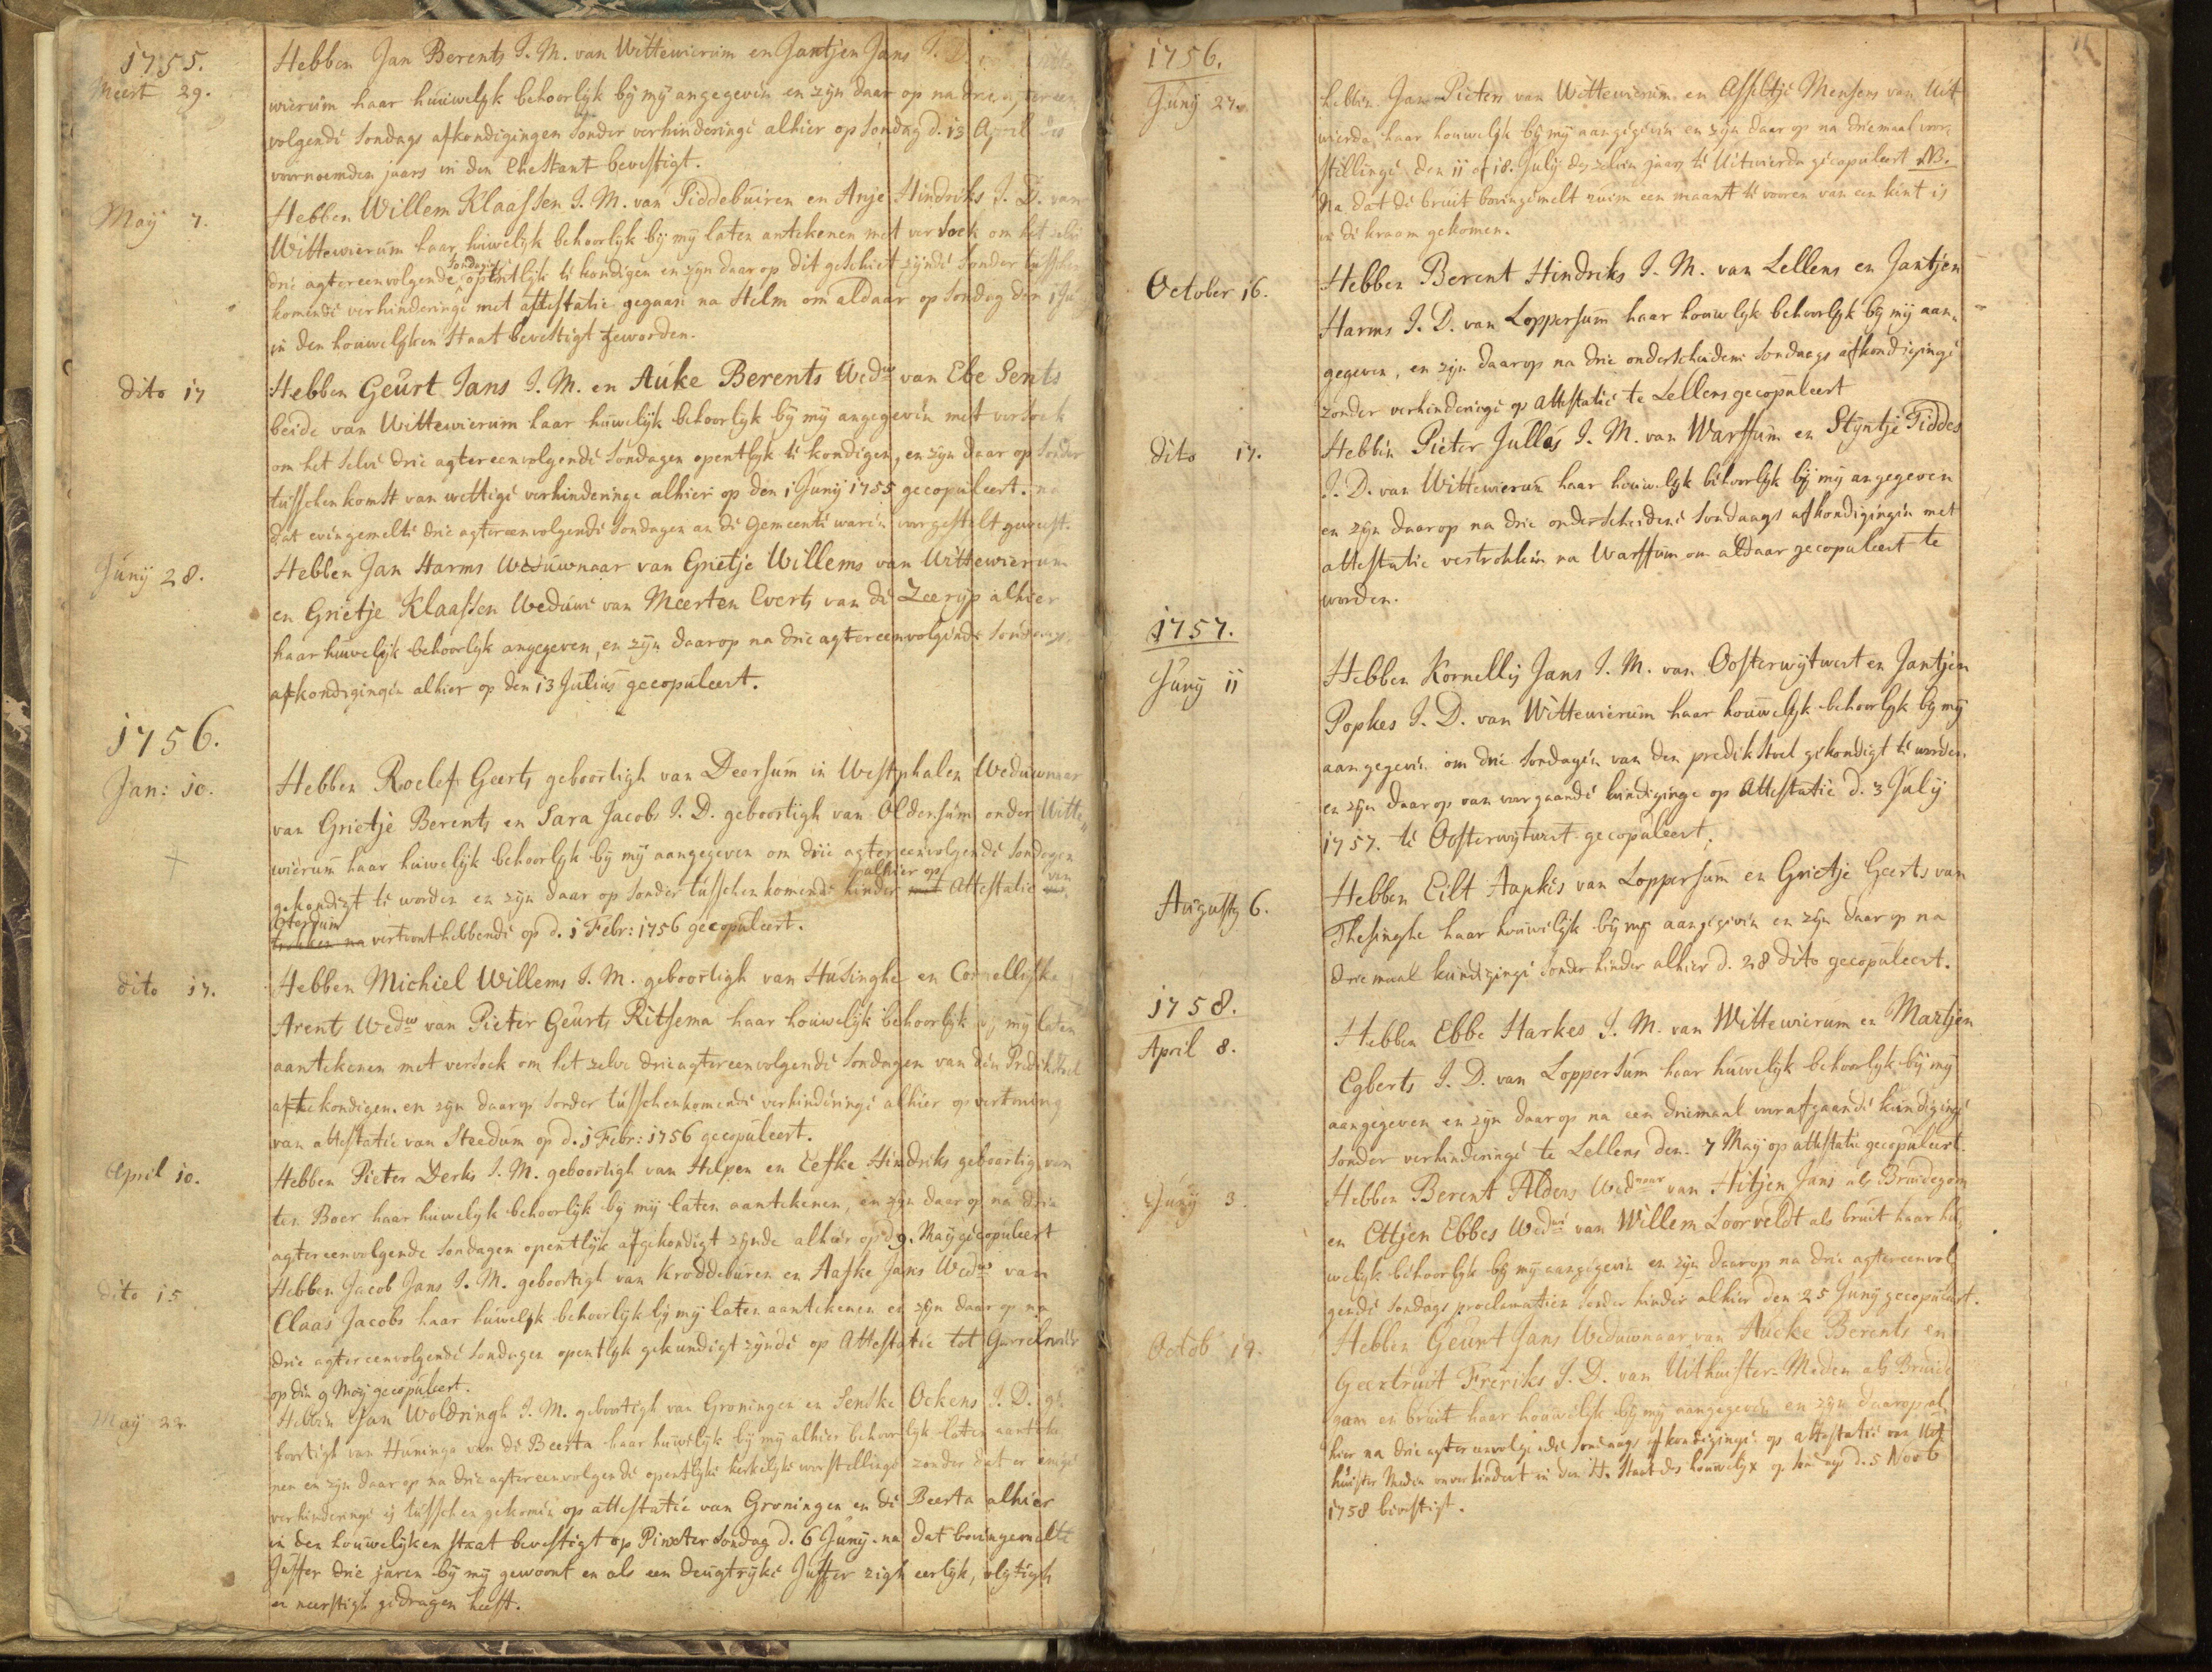 1755.
Meert 29.
Hebben Jan Berents J. M. van Wittewierum en Jantjen Jans J. D.
wierum haar huiwelyk behoorlyk by my angegeven en zyn daar op na drie agtereen
volgende sondags afkondigingen sonder verhinderinge alhier op sondag d. 13 April des
voornoemden jaars in den Ehestant bevestigt.
May 7.
Hebben Willem Klaassen J. M. van Siddebuiren en Anje Hindriks J. D. van
Wittewierum haar huiwelyk behoorlyk by my laten antekenen met versoek om het selve
drie agtereenvolgende sondagen opentlyk te kondigen en zyn daar op dit geschiet zynde sonder tusschen
komende verhinderinge met attestatie gegaan na Stelm om aldaar op sondag den 1 Ju
in den houwelyken staat bevestigt geworden.
dito 17
Hebben Geurt Jans J. M. en Auke Berents Wedwe van Ebe Sents
beide van Wittewierum haar huwelyk behoorlyk by my angegeven met versoek
om het selve drie agtereenvolgende Sondagen opentlyk te kondigen, en zyn daar op sonder
tusschenkomst van wettige verhinderinge alhier op den 1 Juny 1755 gecopuleert. na
dat evengemelte drie agtereenvolgende sondagen an de gemeente waren voorgestelt geweest.
Juny 28.
Hebben Jan Harms Weduwnaar van Grietje Willems van Wittewierum
en Grietje Klaassen Weduwe van Meerten Everts van de Zeeryp alhier
haar huwelyk behoorlyk angegeven, en zyn daarop na drie agtereenvolgende Sondaags
afkondigingen alhier op den 13 Julius gecopuleert.
1756.
Jan: 10.
Hebben Roelef Geerts geboortigh van Deersum in Westphalen Weduwnaar
van Grietje Berents en Sara Jacobs J. D. geboortigh van Oldersum onder Witte
wierum haar huwelyk behoorlyk by my aangegeven om drie agtereenvolgende sondagen
gekondigt te worden en zyn daar op sonder tusschenkomende hinder alhier op Attestatie van
Oterdum vertoont hebbende op d. 1 Febr: 1756 gecopuleert.
dito 17.
Hebben Michiel Willems J. M. geboortigh van Husinghe en Cornelliske
Arents Wedwe van Pieter Geurts Ritsema haar houwelyk behoorlyk by my laten
aantekenen met versoek om het zelve drie agtereenvolgende Sondagen van den Predikstoel
af te kondigen. en zyn daarop sonder tusschenkomende verhinderinge alhier op vertoning
van attestatie van Steedum op d. 1 Febr: 1756 gecopuleert.
April 10.
Hebben Pieter Derks J. M. geboortigh van Helpen en Eefke Hindriks geboortig van
ten Boer haar huwelyk behoorlyk by my laten aantekenen, en zyn daar op na drie
agtereenvolgende Sondagen opentlyk afgekondigt zynde alhier op d 9. May gecopuleert
dito 15
Hebben Jacob Jans J. M. geboortigh van Kroddeburen en Aafke Jans Wedwe van
Claas Jacobs haar huwelyk behoorlyk by my laten aantekenen en zyn daar op na
drie agtereenvolgende Sondagen opentlyk gekundigt zynde op Attestatie tot Garrelsweer
op den 9 May gecopuleert.
May 22.
Hebben Jan Woldringh J. M. geboortigh van Groningen en Senske Ockens J. D. ge
boortigh van Huninga van de Beerta haar huwelyk by my alhier behoorlyk laten aanteke
nen en zyn daar op na drie agtereenvolgende opentlyke kerkelyke voorstellinge zonder dat er enige
verhinderinge is tusschen gekomen op attestatie van Groningen en de Beerta alhier
in den houwelyken staat bevestigt op Pinxter Sondag d. 6 Juny. na dat bovengemelte
Juffer drie jaren by my gewoont en als een deugtryke Juffer zigh eerlyk, vlytigh
en neerstigh gedragen heeft.
1756.
Juny 27.
Hebben Jan Pieters van Wittewierum en Asseltje Mensens van Uit
wierda haar houwelyk by my aangegeven en zyn daar op na driemaal voor
stellinge den 11 of 18. July des zelven jaars te Uitwierda gecopuleert NB.
Na dat de bruit bovengemelt ruim een maant te vooren van een kint is
in de kraam gekomen.
October 16.
Hebben Berent Hindriks J. M. van Lellens en Jantjen
Harms J. D. van Loppersum haar houwlyk behoorlyk by my aan
gegeven, en zyn daarop na drie onderscheidene Sondaegs afkondiginge
zonder verhinderinge op attestatie te Lellens gecopuleert
dito 17.
Hebben Pieter Jullas J. M. van Warffum en Styntje Siddes
J. D. van Wittewierum haar houwelyk behoorlyk by my angegeven
en zyn daarop na drie onderscheidene Sondaags afkondigingen met
attestatie vertrokken na Warffum om aldaar gecopuleert te
worden.
1757.
Juny 11
Hebben Kornellis Jans J. M. van Oosterwytwert en Jantjen
Popkes J. D. van Wittewierum haar houwelyk behoorlyk by my
aangegeven om drie Sondagen van den predikstoel gekondigt te worden
en zyn daarop van voorgaande kundiginge op Attestatie d. 3 July
1757. te Oosterwytwert gecopuleert.
Augusty 6.
Hebben Eilt Aapkes van Loppersum en Grietje Geerts van
Thesinghe haar houwelyk by my aangegeven en zyn daarop na
driemaal kundiginge sonder hinder alhier d. 28 dito gecopuleert.
1758.
April 8.
Hebben Ebbe Harkes J. M. van Wittewierum en Martjen
Egberts J. D. van Loppersum haar huwelyk behoorlyk by my
aangegeven en zyn daarop na een driemaal voorafgaande kundiginge
sonder verhinderinge te Lellens den 7 May op attestatie gecopuleert.
Juny 3.
Hebben Berent Alders Wednaar van Hitjen Jans als Bruidegom
en Ettjen Ebbes Wedwe van Willem Loorveldt als bruit haar hu
welyk behoorlyk by my aangegeven en zyn daarop na drie agtereenvol
gende Sondags proclamatien sonder hinder alhier den 25 Juny gecopuleert.
Octob 19.
Hebben Geurt Jans Weduwnaar van Aucke Berents en
Geertruit Freriks J. D. van Uithuister-Meden als Bruide
gom en bruit haar houwelyk by my aangegeven en zyn daarop al
hier na drie agtereenvolgende Sondaags afkondiginge op attestatie van Uit
huister Meden onverhindert in den H. Staat des houwelyx op sondags d. 5 Novb
1758 bevestigt.